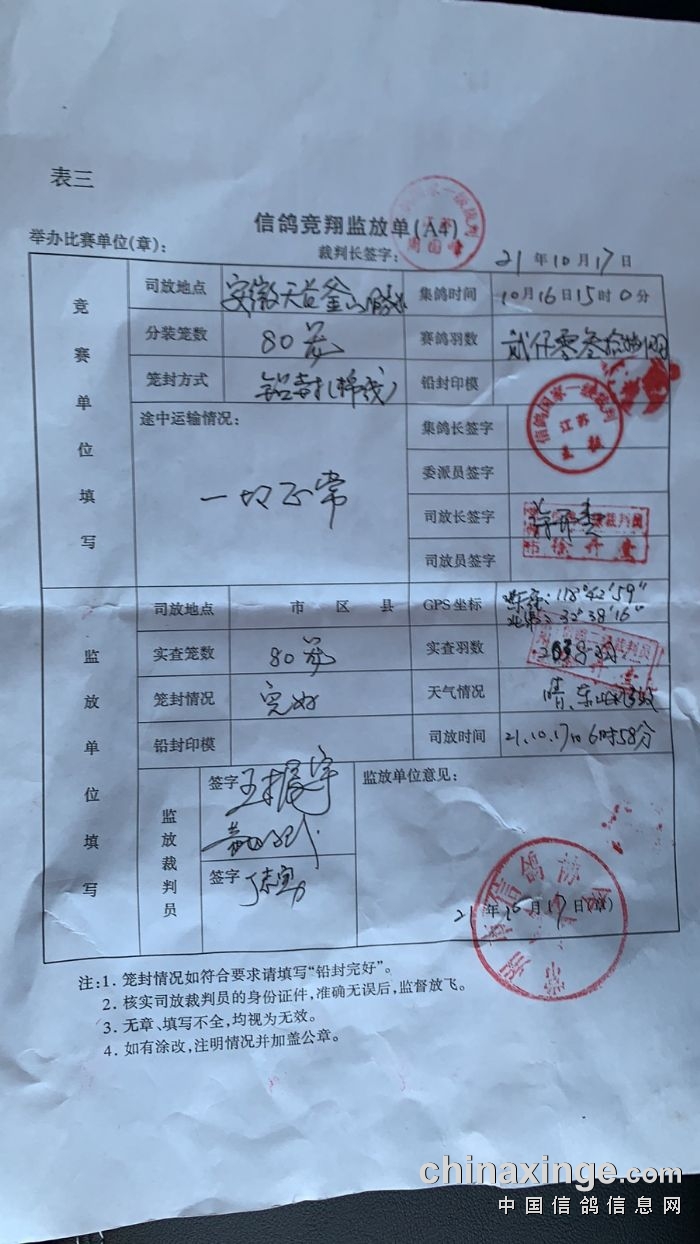 表三
信鸽竞翔监放单(A4)
举办比赛单位(章):
裁判长签字:
21年10月17日
竞赛单位填写
司放地点
集鸽时间 10月16日15时0分
分装笼数 80笼
赛鸽羽数
笼封方式
铅封印模
途中运输情况:
一切正常
集鸽长签字
信鸽国家一级裁判
江苏
委派员签字
司放长签字
司放员签字
监放单位填写
司放地点 市 区 县
GPS坐标 东经:118°42′59″
北纬:32°38′16″
实查笼数 80笼
实查羽数
笼封情况 完好
天气情况
铅封印模
司放时间 21.10.17日6时58分
监放裁判员
签字
签字
监放单位意见:
21年10月17日(章)
注:1. 笼封情况如符合要求请填写“铅封完好”。
2. 核实司放裁判员的身份证件,准确无误后,监督放飞。
3. 无章、填写不全,均视为无效。
4. 如有涂改,注明情况并加盖公章。
chinaxinge.com
中国信鸽信息网